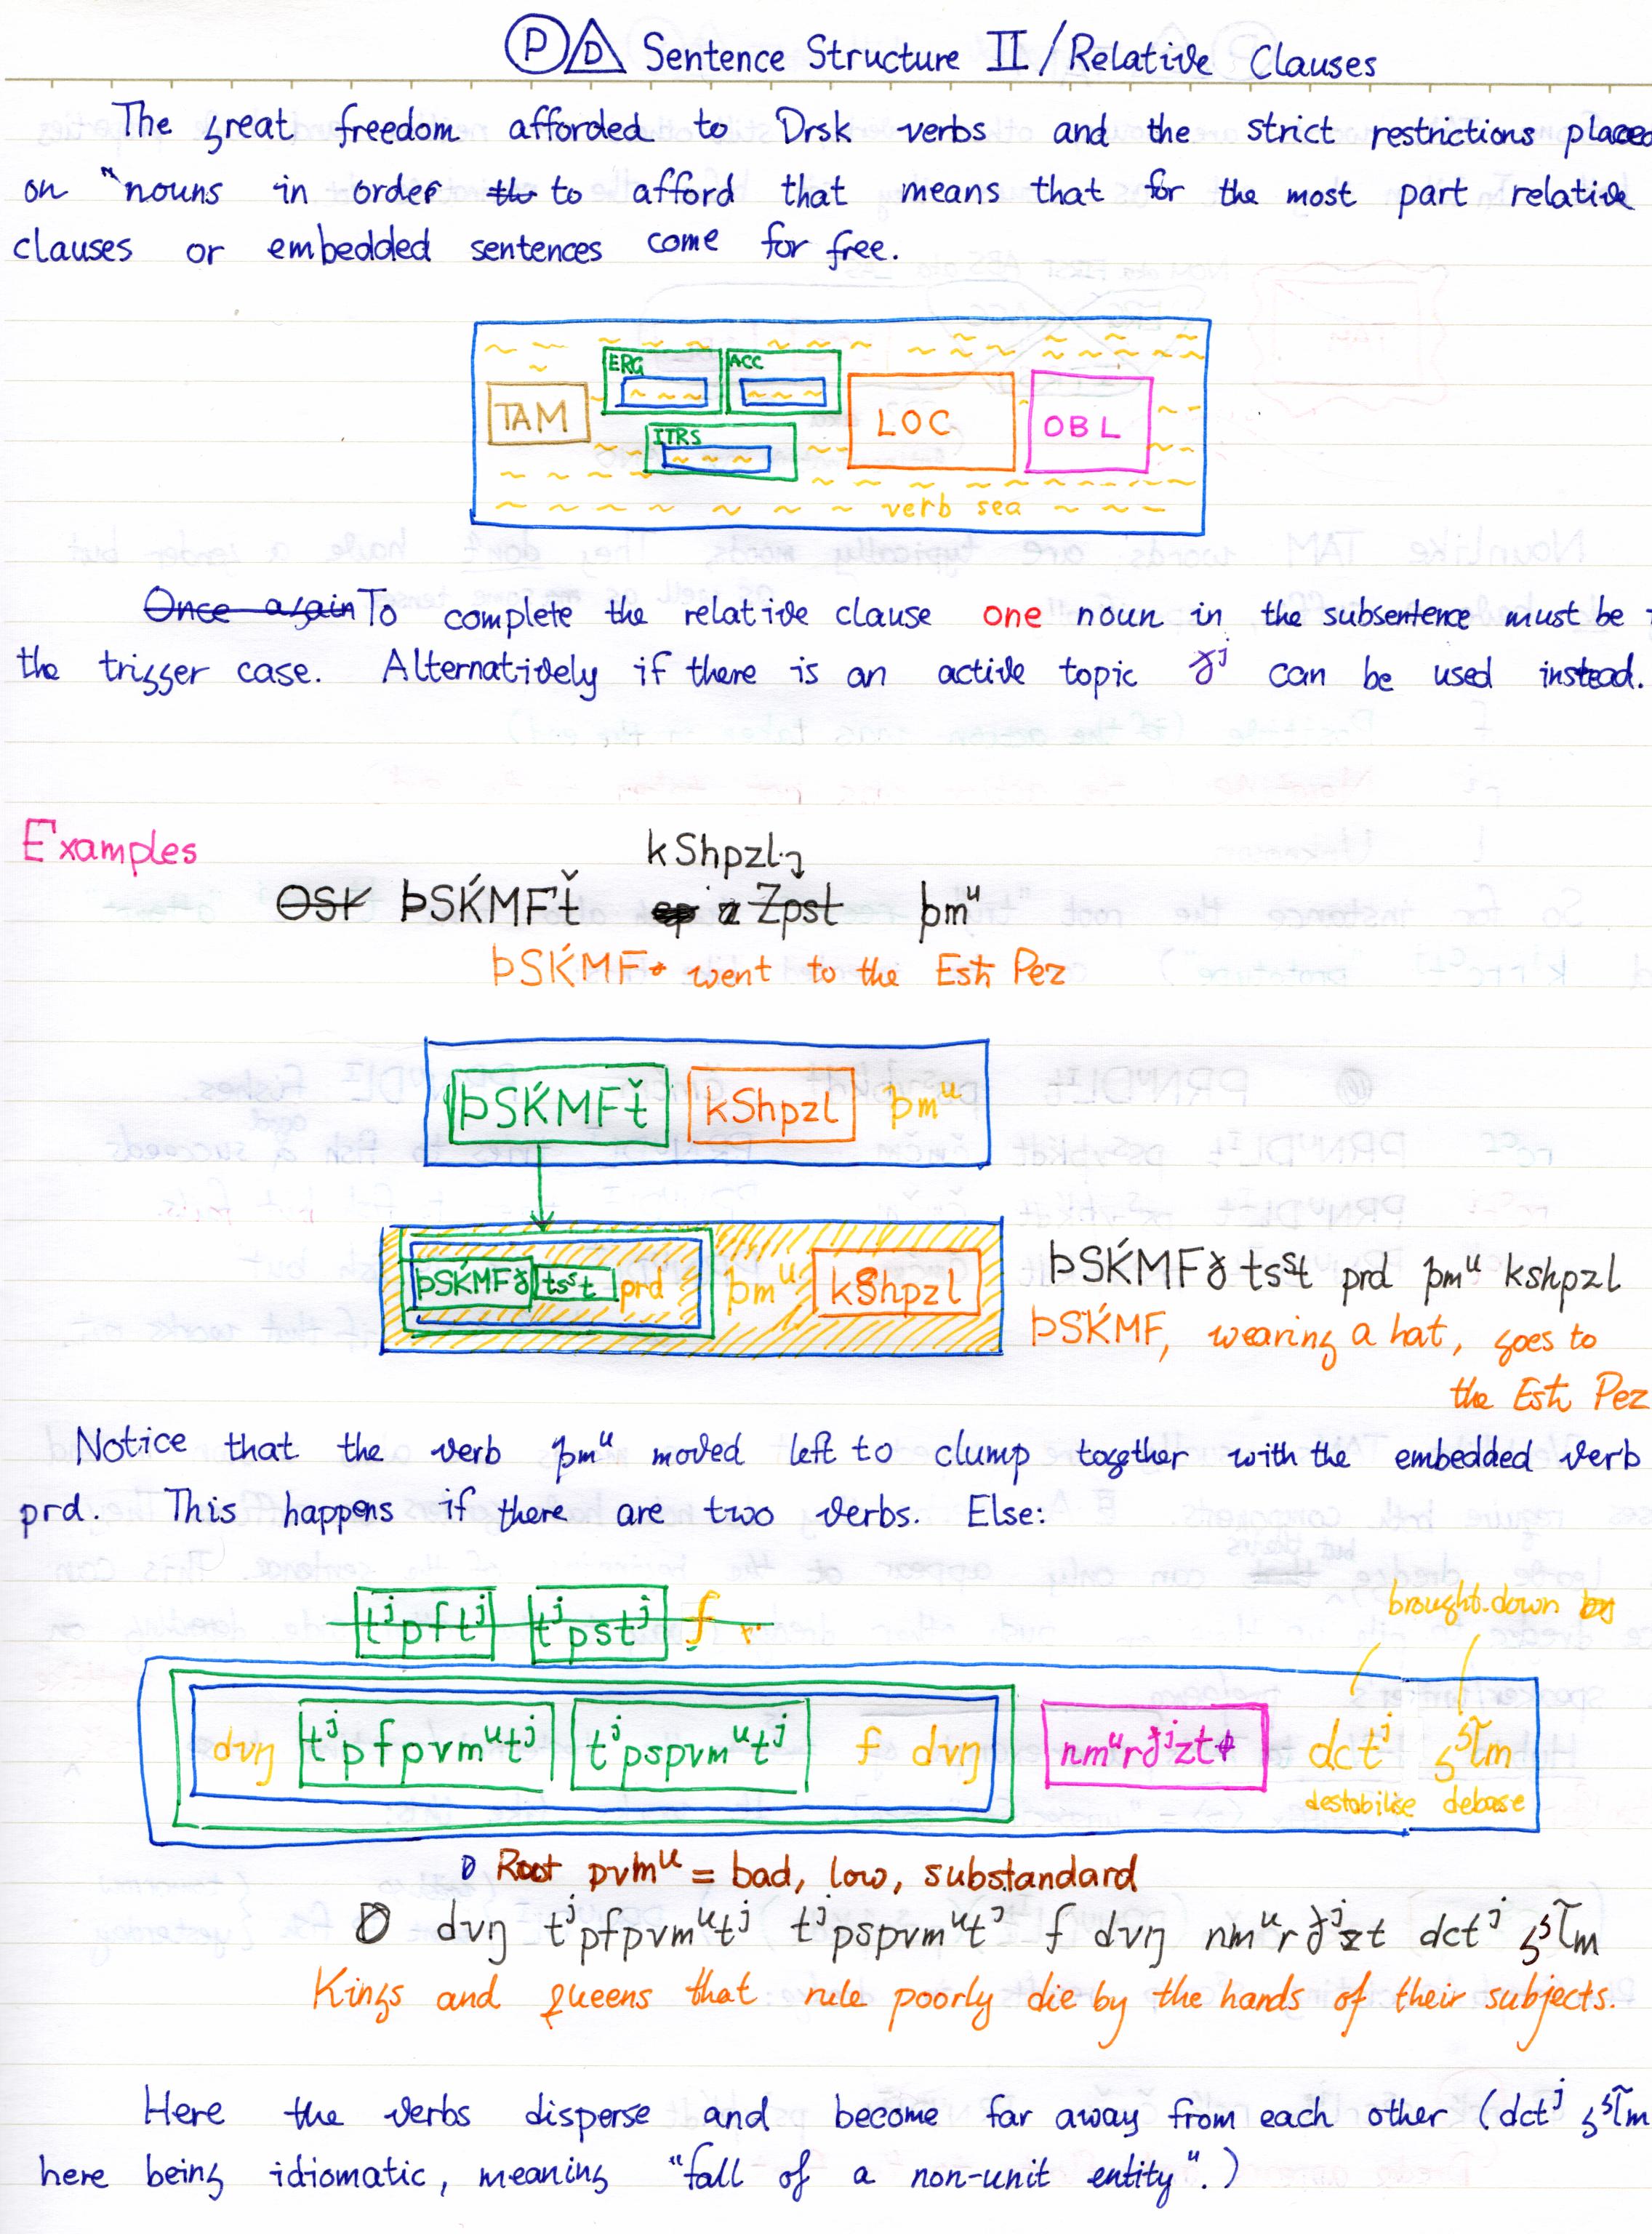 P D Sentence Structure II / Relative Clauses
The great freedom afforded to Drsk verbs and the strict restrictions placed
on nouns in order to afford that means that for the most part relative
clauses or embedded sentences come for free.
ERG ACC
TAM LOC OBL
ITRS
verb sea
Once again To complete the relative clause one noun in the subsentence must be
the trigger case. Alternatively if there is an active topic ðʲ can be used instead.
Examples
kShpzl
OSK ÞSḰMFť Zpst þmᵘ
ÞSḰMF went to the Esħ Pez
ÞSḰMFť kShpzl þmᵘ
ÞSḰMFð tsˢt prd þmᵘ kShpzl
ÞSḰMFð tsˢt prd þmᵘ kshpzl
ÞSḰMF, wearing a hat, goes to
the Esħ Pez
Notice that the verb þmᵘ moved left to clump together with the embedded verb
prd. This happens if there are two verbs. Else:
brought.down by
tʲpftʲ tʲpstʲ f
dvŋ tʲpfpvmᵘtʲ tʲpspvmᵘtʲ f dvŋ nmᵘrðʲzt dctʲ
destabilise debase
Root pvmᵘ = bad, low, substandard
dvŋ tʲpfpvmᵘtʲ tʲpspvmᵘtʲ f dvŋ nmᵘrðʲzt dctʲ
Kings and queens that rule poorly die by the hands of their subjects.
Here the verbs disperse and become far away from each other (dctʲ
here being idiomatic, meaning "fall of a non-unit entity".)